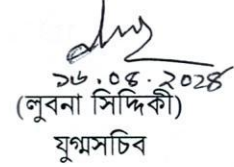 ১৬.০৪.২০২৪
(লুবনা সিদ্দিকী)
যুগ্মসচিব